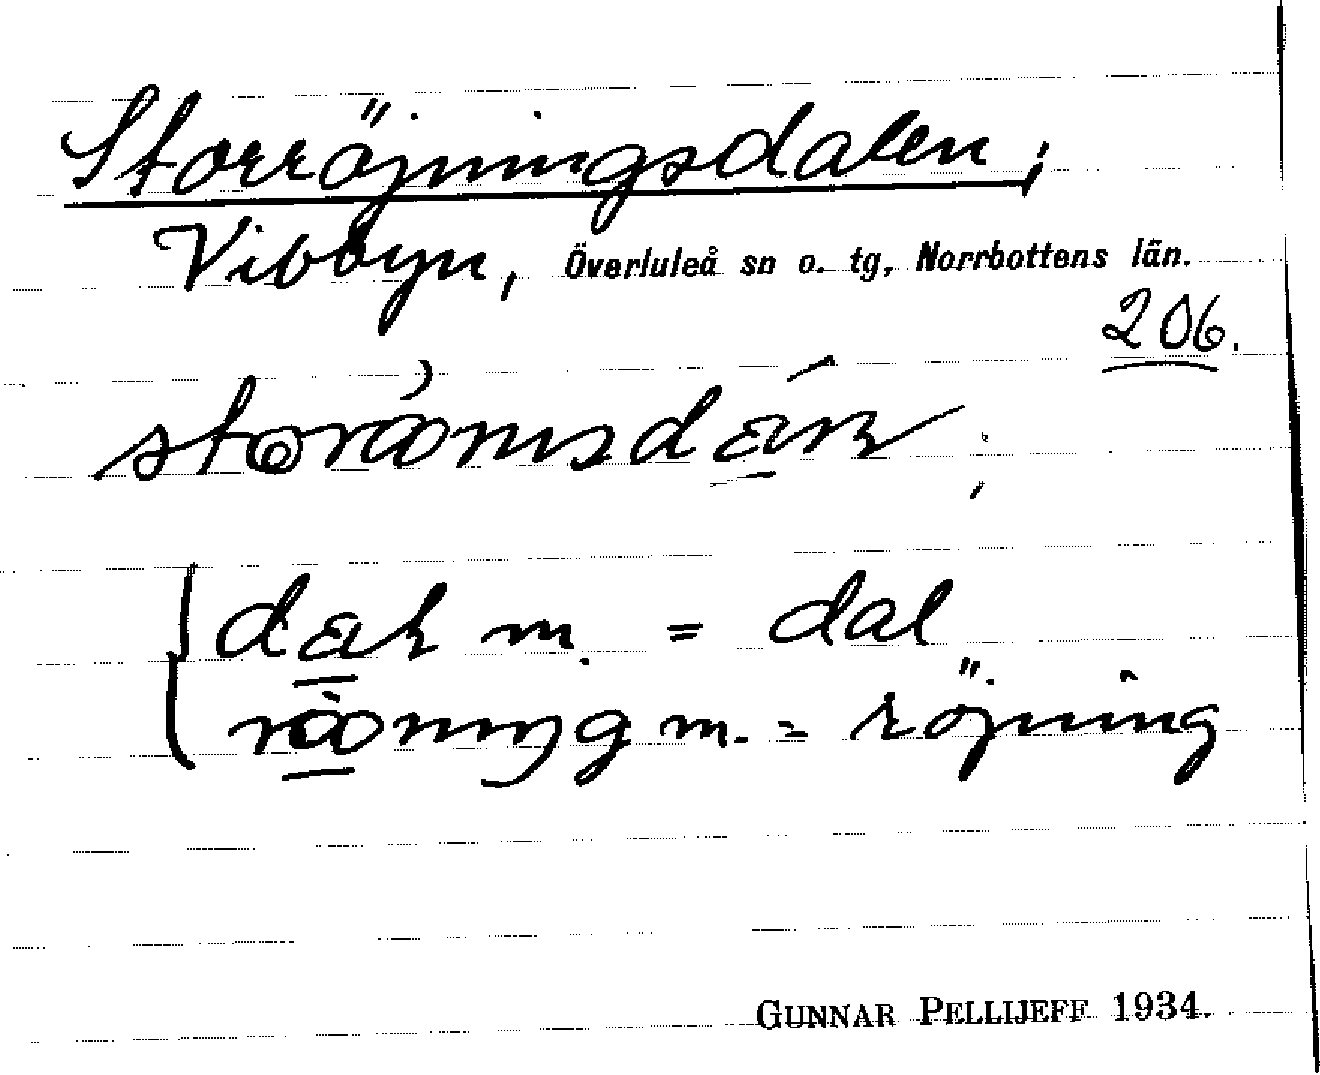 Storröjningsdalen,
Vibbyn, Överluleå sn o. tg, Norrbottens län.
206.
m. = dal
m. = röjning
GUNNAR PELLIJEFF 1934.